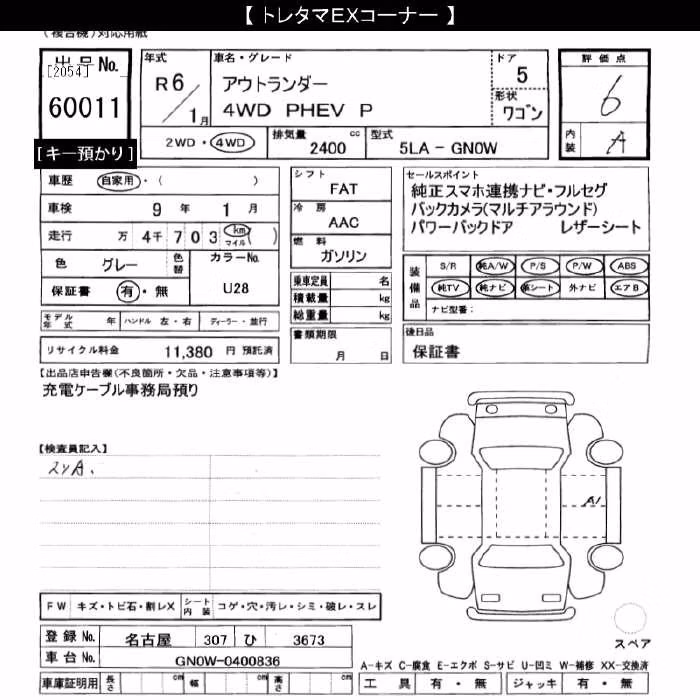 【 トレタマEXコーナー 】
(複合機)対応用紙
出品No.
[2054]
60011
[キー預かり]
年式
R6/1月
車名・グレード
アウトランダー
4WD PHEV P
ドア
5
形状
ワゴン
2WD・4WD
排気量 2400 cc
型式 5LA-GN0W
評価点
6
内装 A
車歴 自家用・( )
車検 9年 1月
走行 万 4千703 km マイル ( )
色 グレー 色替
カラーNo. U28
保証書 有・無
モデル年式 年 ハンドル 左・右 ディーラー・並行
リサイクル料金 11,380 円 預託済
シフト
FAT
冷房
AAC
燃料
ガソリン
乗車定員 名
積載量 kg
総重量 kg
書類期限
月 日
セールスポイント
純正スマホ連携ナビ・フルセグ
バックカメラ(マルチアラウンド)
パワーバックドア レザーシート
装備品
S/R 純A/W P/S P/W ABS
純TV 純ナビ 革シート 外ナビ エアB
ナビ型番:
後日品
保証書
【出品店申告欄(不良箇所・欠品・注意事項等)】
充電ケーブル事務局預り
【検査員記入】
スソA.
A1
FW キズ・トビ石・割レX シート内装 コゲ・穴・汚レ・シミ・破レ・スレ
スペア
登録No. 名古屋 307 ひ 3673
車台No. GN0W-0400836
A-キズ C-腐食 E-エクボ S-サビ U-凹ミ W-補修 XX-交換済
車庫証明用 長さ cm 幅 cm 高さ cm
工具 有・無 ジャッキ 有・無